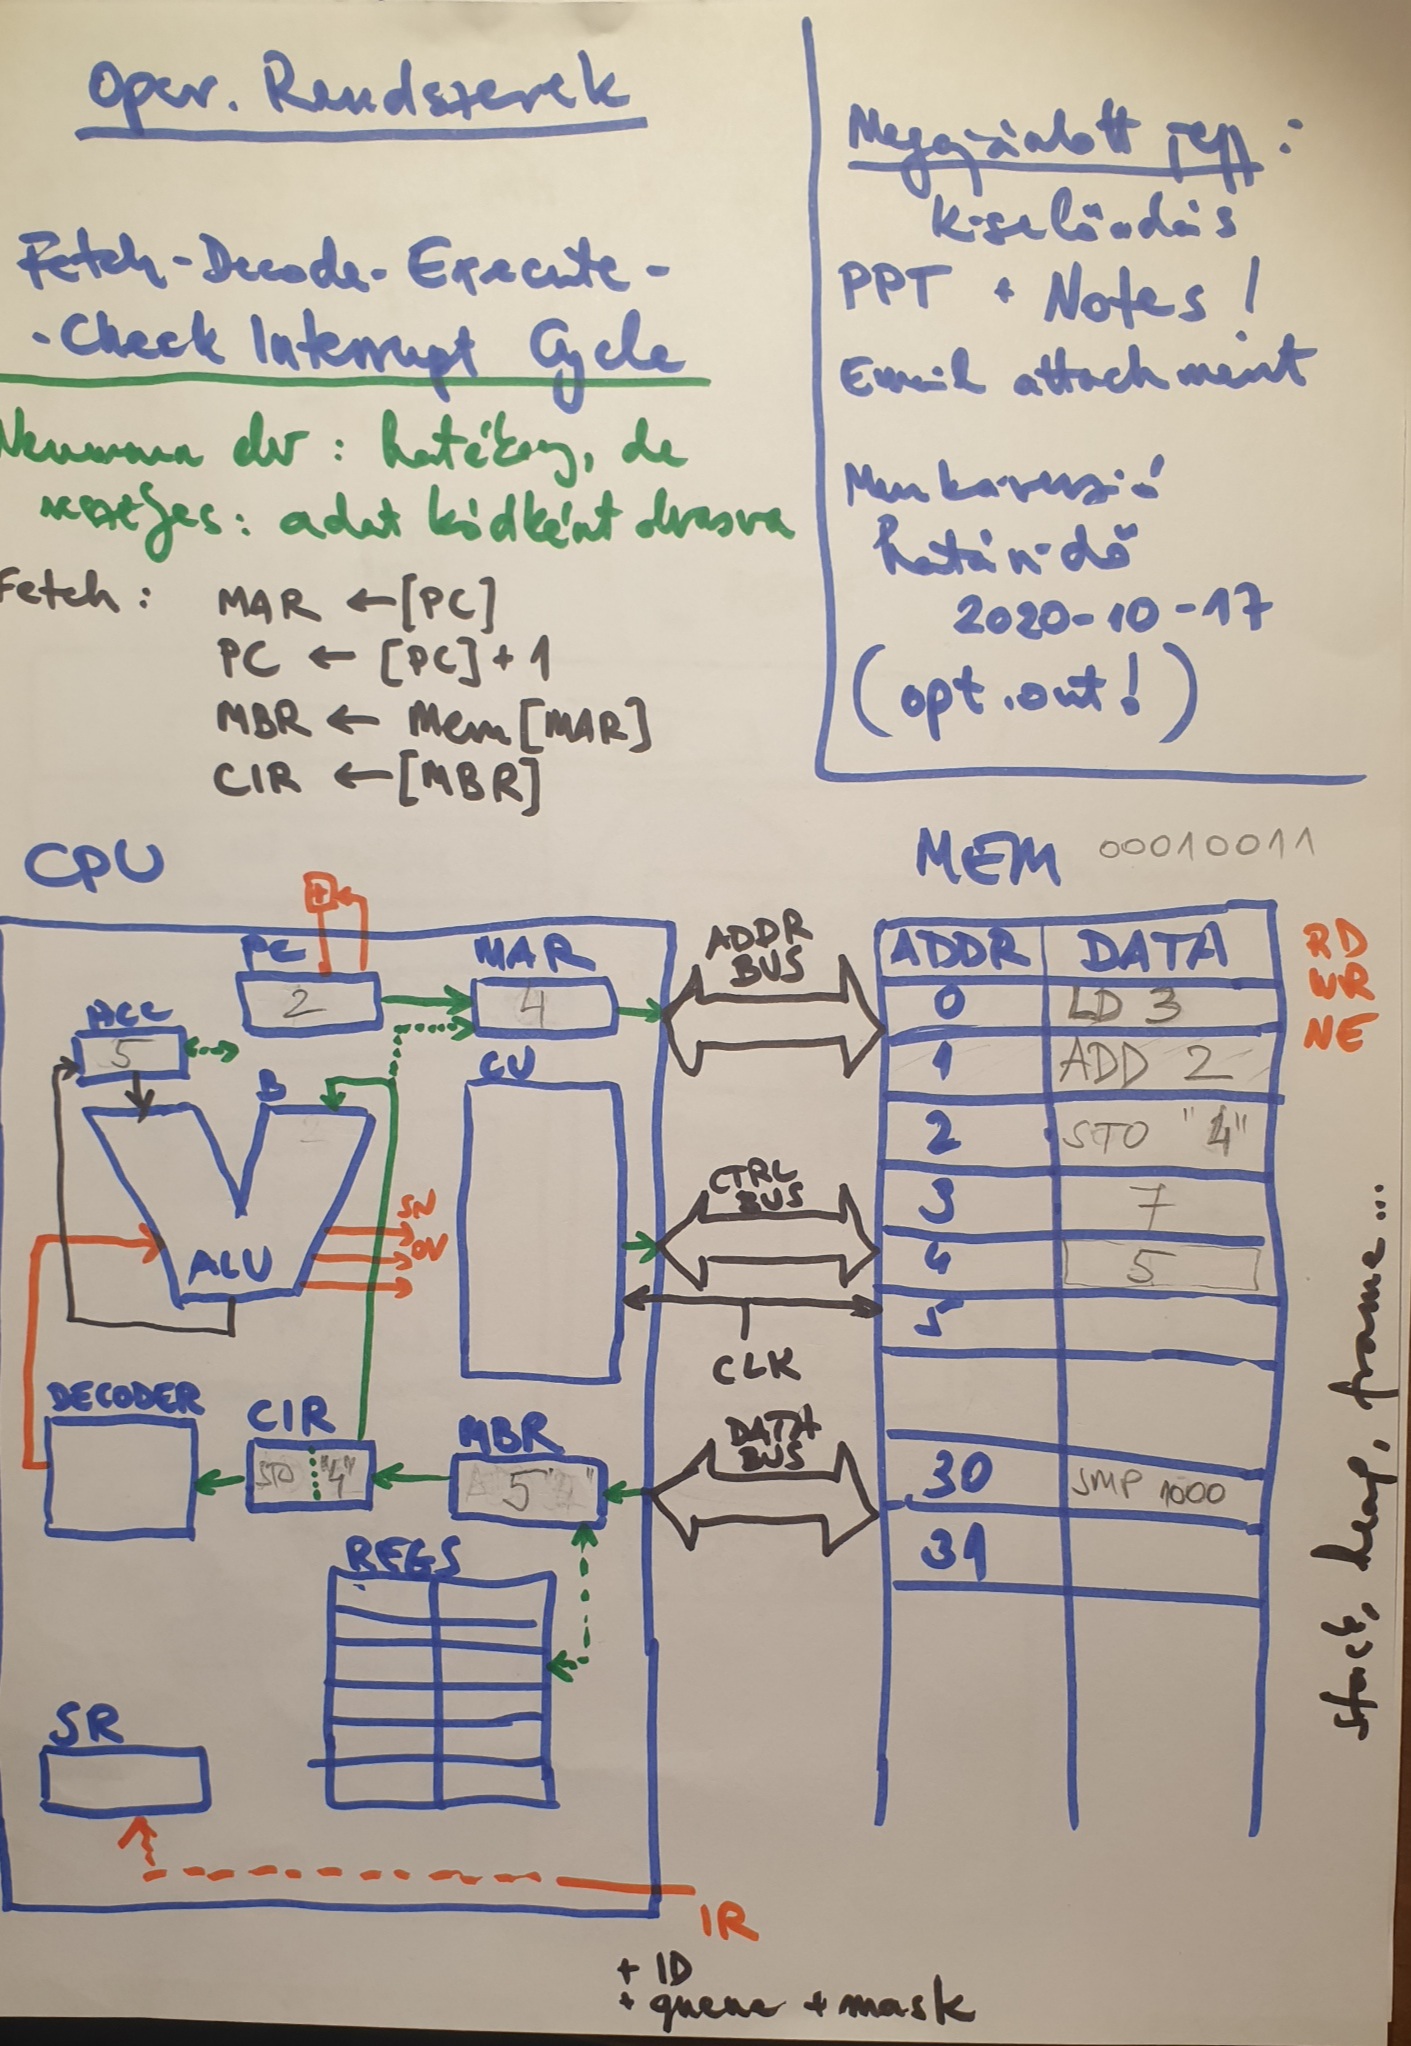 Oper. Rendszerek
Fetch-Decode-Execute-
-Check Interrupt Cycle
Neumann elv: hatékony, de
veszélyes: adat kódként olvasva
Fetch:
MAR ← [PC]
PC ← [PC] + 1
MBR ← Mem[MAR]
CIR ← [MBR]
Megajánlott jegy:
kiselőadás
PPT + Notes!
Email attachment
Munkaverzió
határidő
2020-10-17
(opt.out!)
CPU
+
PC
2
MAR
4
ACC
5
B
CU
ALU
SN
OV
DECODER
CIR
STO "4"
MBR
5
REGS
SR
IR
+ ID
+ queue + mask
ADDR
BUS
CTRL
BUS
CLK
DATA
BUS
MEM 00010011
ADDR DATA
0 LD 3
1 ADD 2
2 STO "4"
3 7
4 5
5
30 JMP 1000
31
RD
WR
NE
stack, heap, frame...